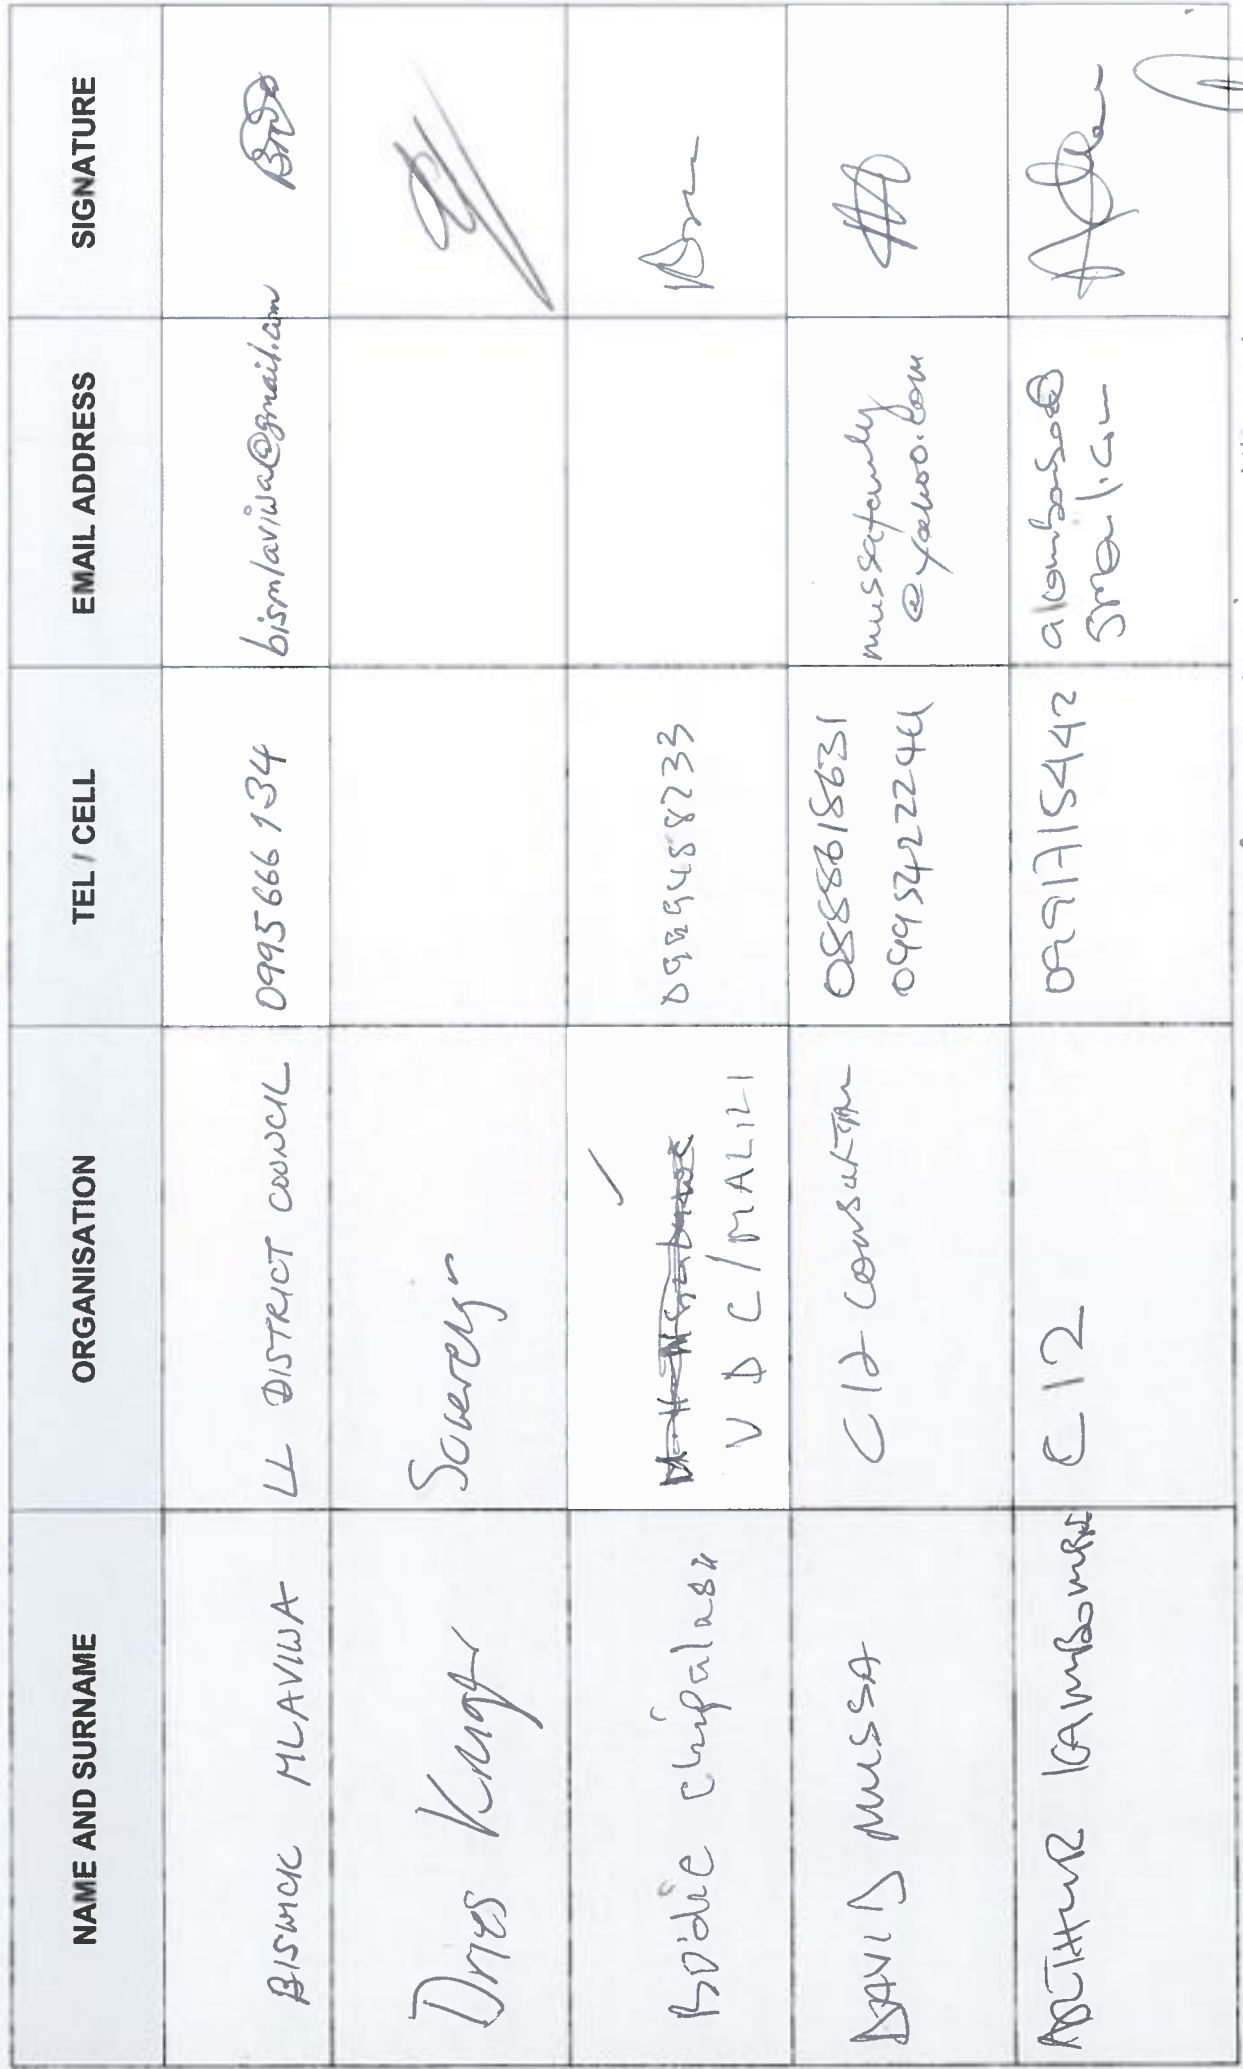 NAME AND SURNAME ORGANISATION TEL / CELL EMAIL ADDRESS SIGNATURE
BISWICK MLAVIWA LL DISTRICT COUNCIL 0995666134 bismlaviwa@gmail.com
Dries Kruger Sovereign
Bodie Chipalasa
VDC/MALILI 0999458233
DAVID MUSSA C12 CONSULTAN 0888618631 mussafamily
0995422244 @yahoo.com
ARTHUR KAMBOMBE C12 0991715442